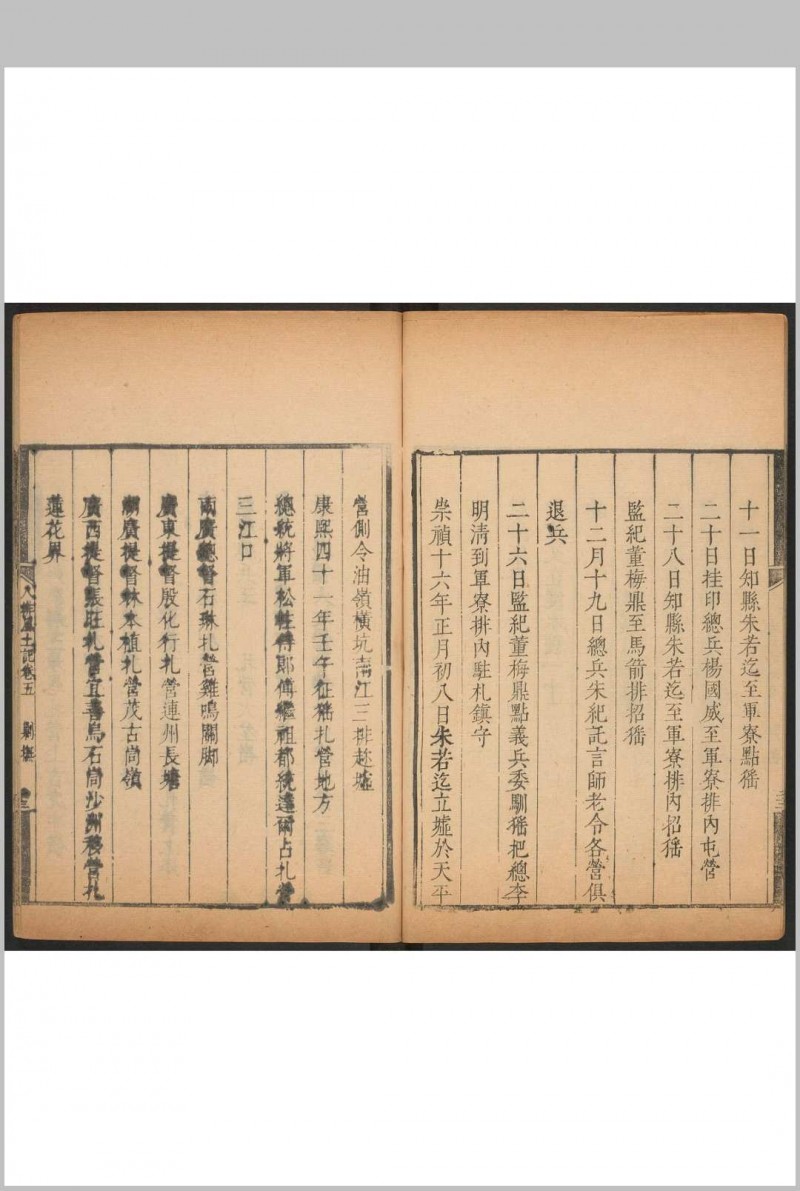 十一日知縣朱若迄至軍寮點猺
二十日挂印總兵楊國威至軍寮排內屯營
二十八日知縣朱若迄至軍寮排內招猺
監紀董梅鼎至馬箭排招猺
十二月十九日總兵朱紀託言師老令各營俱
退兵
二十六日監紀董梅鼎點義兵委馴猺把總李
明清到軍寮排內駐札鎮守
崇禎十六年正月初八日朱若迄立墟於天平
營側令油嶺橫坑南江三排趁墟
康熙四十一年壬午征猺札營地方
總統將軍松柱傅郎傅繼祖都統達爾占札營
三江口
兩廣總督石琳札營雞鳴關脚
廣東提督殷化行札營連州長塘
湖廣提督林本植札營茂古岡嶺
廣西提督張旺札營宜善烏石岡沙洲移營札
蓮花界
八排風土記卷五